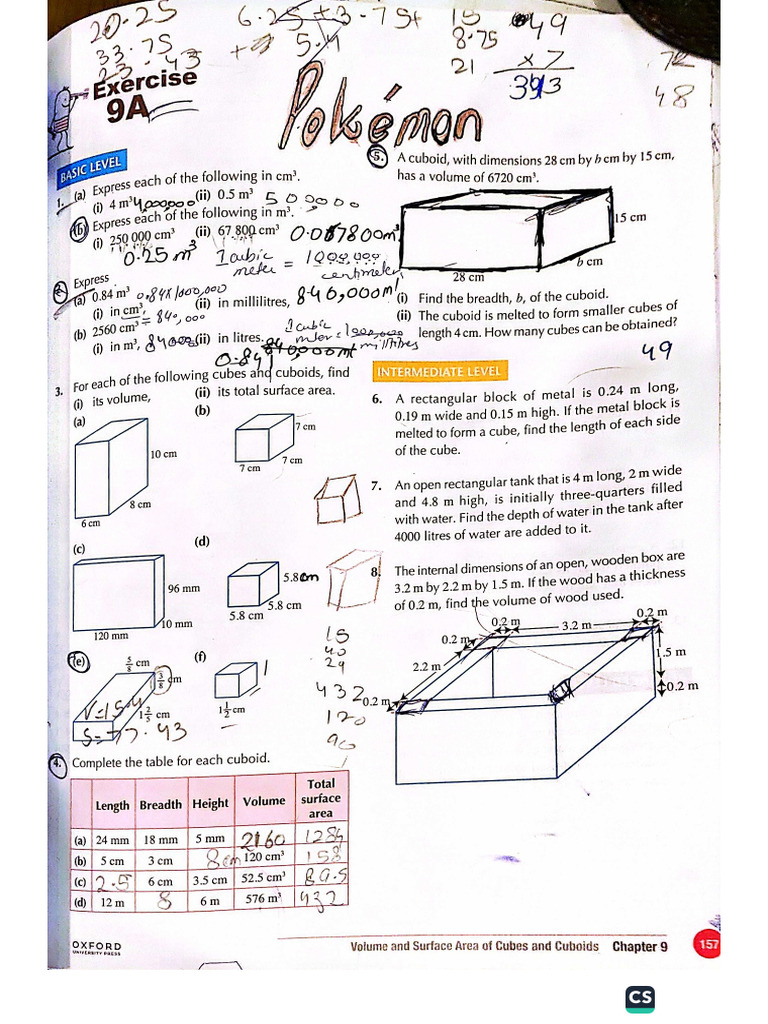 20.25
33.75
23.43
6.25 + 3.75 +
5.4
15
8.75
21
49
x 7
343
72
48
Exercise
9A
Pokémon
BASIC LEVEL
1. (a) Express each of the following in cm³.
(i) 4 m³ 4000000 (ii) 0.5 m³ 500000
(b) Express each of the following in m³.
(i) 250 000 cm³ (ii) 67 800 cm³ 0.067800m³
0.25 m³
1 cubic meter = 1000,000 centimeter
2. Express
(a) 0.84 m³ 0.84x1000,000
(i) in cm³, = 840,000 (ii) in millilitres, 840,000ml
(b) 2560 cm³
(i) in m³, 84000 (ii) in litres.
1 cubic meter = 1000,000 millilitres
0.841
3. For each of the following cubes and cuboids, find
(i) its volume, (ii) its total surface area.
(a)
10 cm
8 cm
6 cm
(b)
7 cm
7 cm
7 cm
(c)
96 mm
10 mm
120 mm
(d)
5.8 cm
5.8 cm
5.8 cm
(e)
5/8 cm
3/8 cm
1 2/5 cm
V=15.4
S=77.43
(f)
1 1/2 cm
15
40
24
432
120
96
4. Complete the table for each cuboid.
Length Breadth Height Volume Total surface area
(a) 24 mm 18 mm 5 mm 2160 1284
(b) 5 cm 3 cm 8cm 120 cm³ 158
(c) 2.5 6 cm 3.5 cm 52.5 cm³ 89.5
(d) 12 m 8 6 m 576 m³ 432
5. A cuboid, with dimensions 28 cm by b cm by 15 cm,
has a volume of 6720 cm³.
15 cm
b cm
28 cm
(i) Find the breadth, b, of the cuboid.
(ii) The cuboid is melted to form smaller cubes of
length 4 cm. How many cubes can be obtained?
49
INTERMEDIATE LEVEL
6. A rectangular block of metal is 0.24 m long,
0.19 m wide and 0.15 m high. If the metal block is
melted to form a cube, find the length of each side
of the cube.
7. An open rectangular tank that is 4 m long, 2 m wide
and 4.8 m high, is initially three-quarters filled
with water. Find the depth of water in the tank after
4000 litres of water are added to it.
8. The internal dimensions of an open, wooden box are
3.2 m by 2.2 m by 1.5 m. If the wood has a thickness
of 0.2 m, find the volume of wood used.
0.2 m
0.2 m
3.2 m
0.2 m
2.2 m
1.5 m
0.2 m
0.2 m
OXFORD
UNIVERSITY PRESS
Volume and Surface Area of Cubes and Cuboids Chapter 9 157
CS